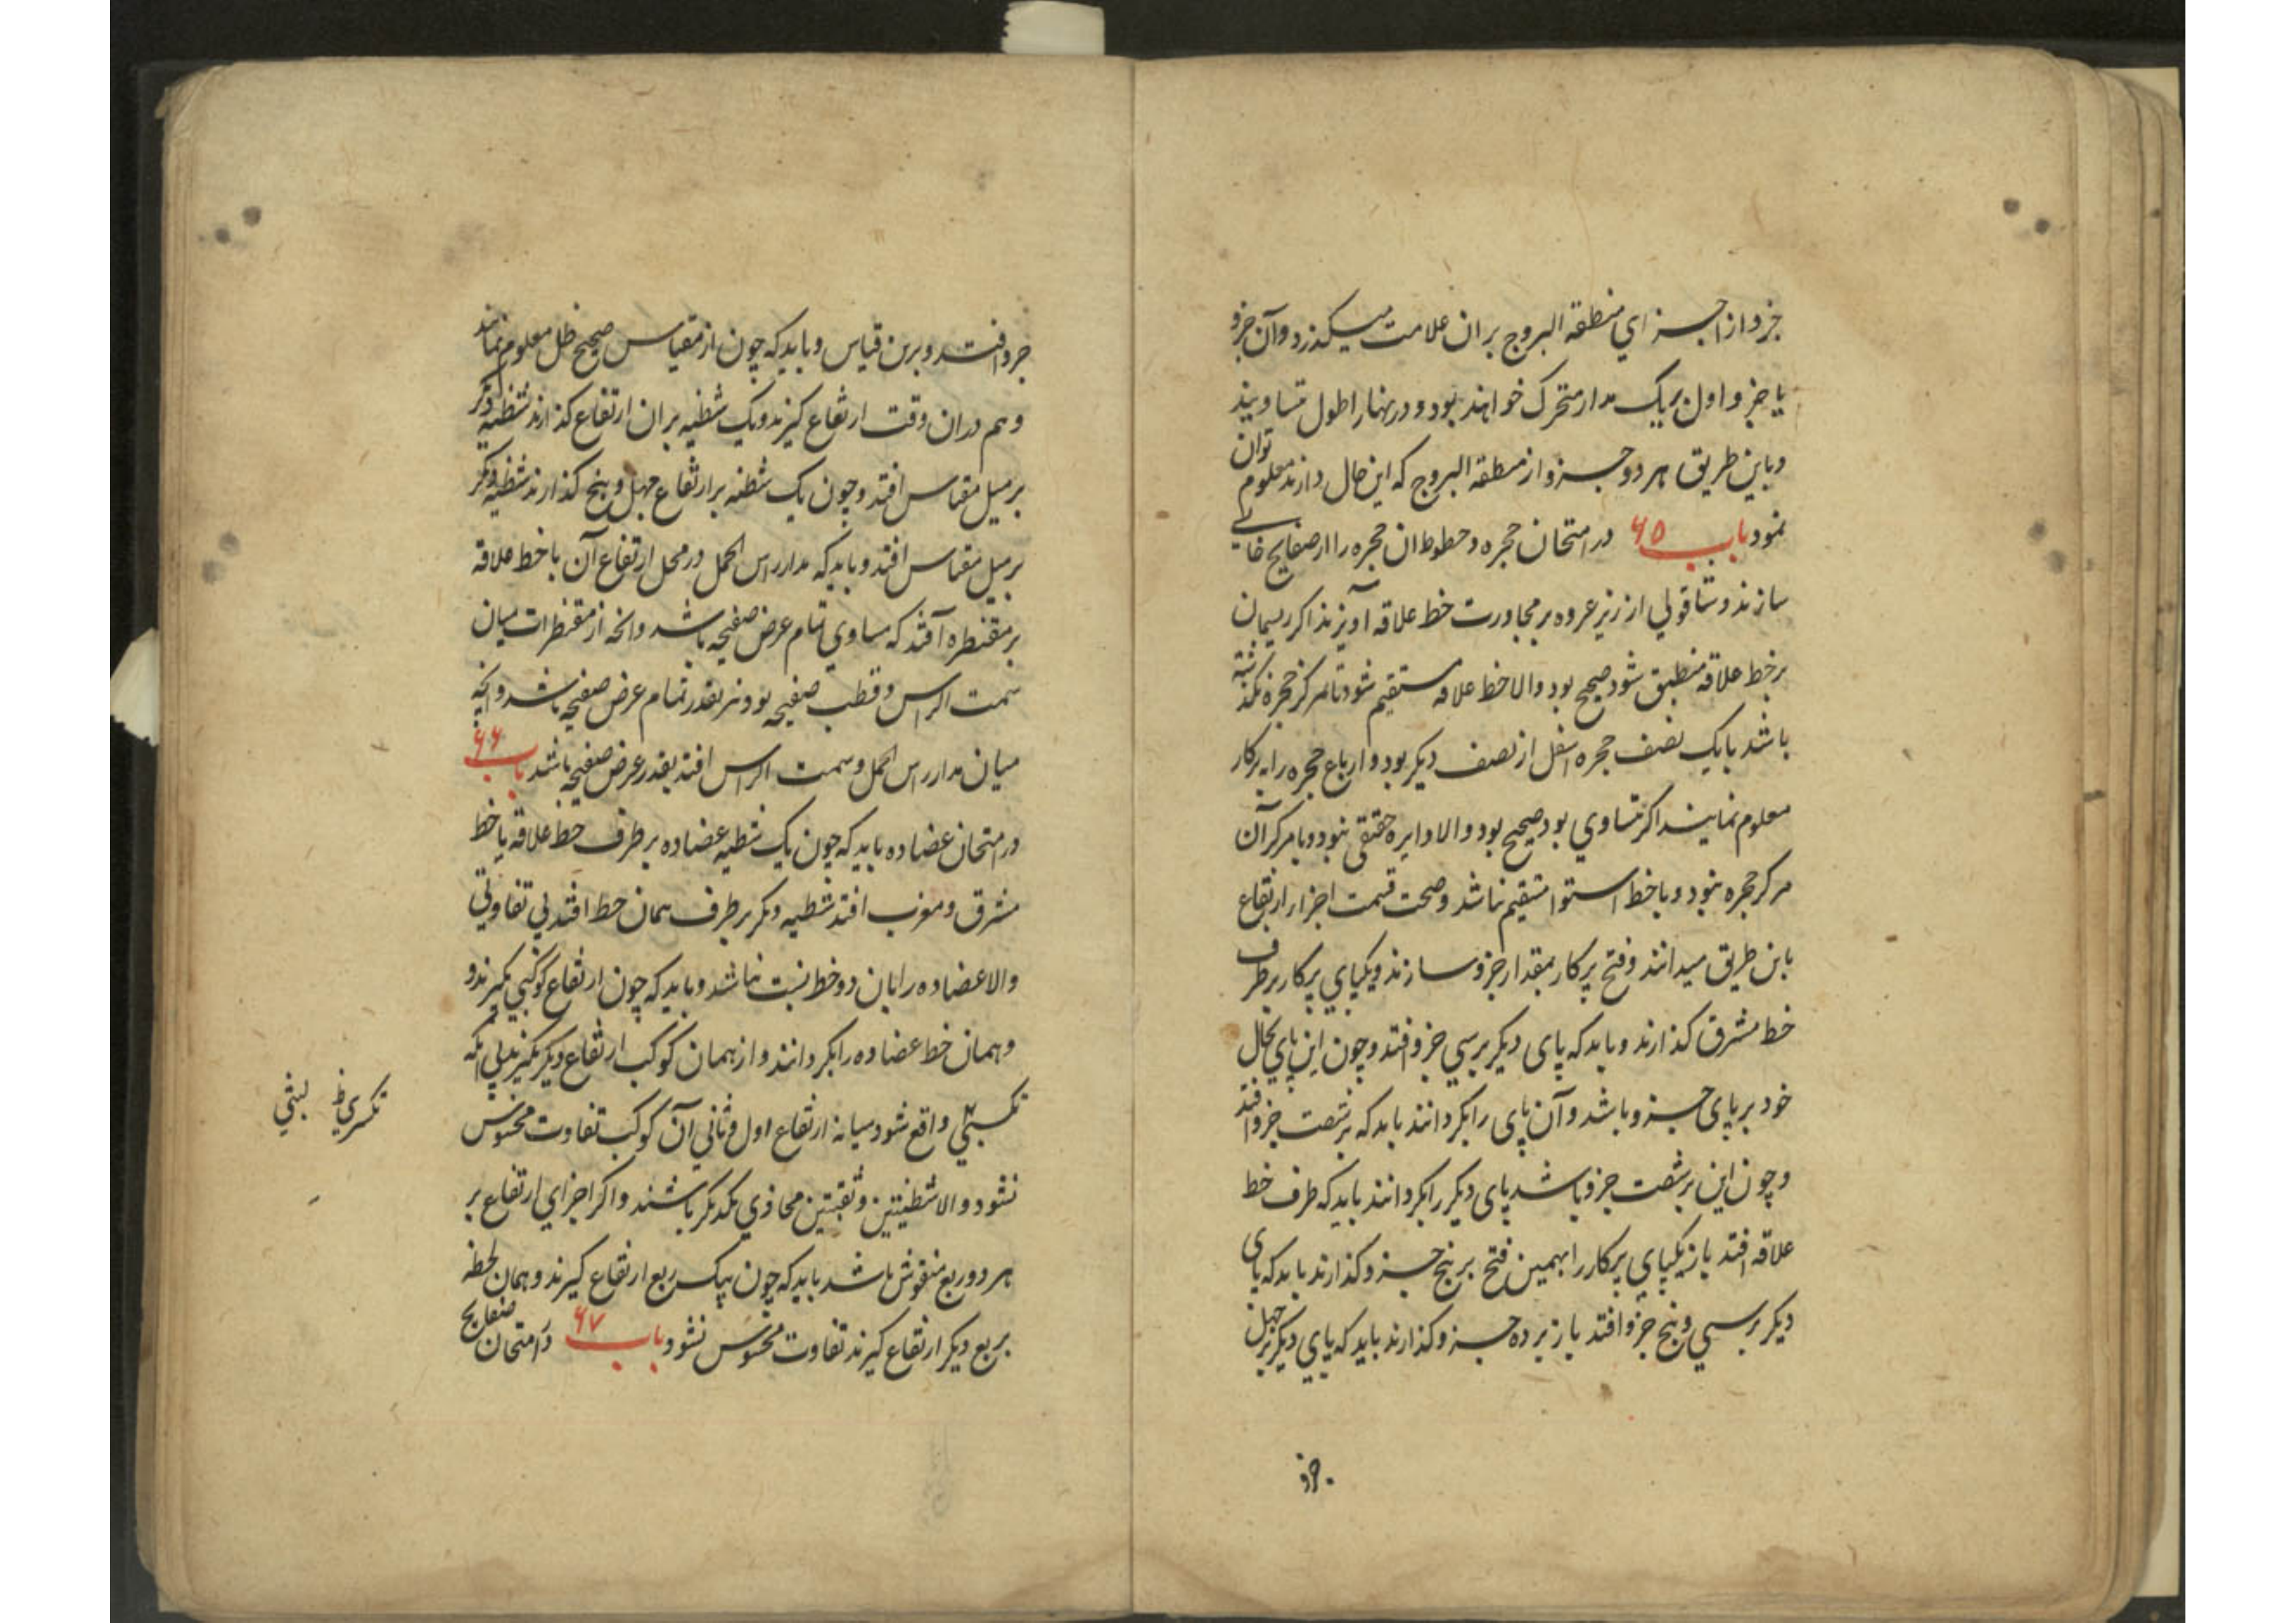 جزو از اجزاي منطقة البروج بران علامت میکذرد و آن جزو
یا جزو اول بریک مدار متحرک خواهند بود و در نهار اطول متساویند
و باین طریق هر دو جزو از منطقة البروج که این حال دارند معلوم توان
نمود باب ۶۵ در امتحان حجره و خطوط ان حجره را از صفایح خالی
سازند و شاقولي از زیر عروه بر مجاورت خط علاقه آویزند اکر ریسمان
بر خط علاقه منطبق شود صحیح بود والا خط علاقه مستقیم شود تا مرکز حجره نکذشته
باشد یا یک نصف حجره اثقل از نصف دیکر بود و ارباع حجره را بپرکار
معلوم نمایند اکر متساوي بود صحیح بود والا دایره حقیقی نبود و یا مرکز آن
مرکز حجره نبود و یا خط استوا مستقیم نباشد و صحت قسمت اجزاء ارتفاع
باین طریق میدانند و فتح پرکار بمقدار جزو سازند و یکپاي پرکار بر طرف
خط مشرق کذارند و باید که پای دیکر بر سي جزو افتد و چون این پاي بحال
خود بر پای جزو باشد و آن پای را بکردانند باید که بر شصت جزو افتد
و چون این بر شصت جزو باشد پای دیکر را بکردانند باید که طرف خط
علاقه افتد باز یکپاي پرکار را بهمین فتح بر پنج جزو کذارند باید که پای
دیکر بر سي و پنج جزو افتد باز بر ده جزو کذارند باید که پاي دیکر بر چهل
جزو
جزو افتد و برین قیاس و باید که چون از مقیاس صحیح ظل معلوم نمایند
و هم دران وقت ارتفاع کیرند و یک شظیه بران ارتفاع کذارند شظیه دیکر
بر میل مقیاس افتد و چون یک شظیه بر ارتفاع چهل و پنج کذارند شظیه دیکر
بر میل مقیاس افتد و باید که مدار راس الحمل در محل ارتفاع آن با خط علاقه
بر مقنطره آفتد که مساوي تمام عرض صفیحه باشد و انچه از مقنطرات میان
سمت الراس و قطب صفیحه بود نیز بقدر تمام عرض صفیحه باشد و انچه
میان مدار راس الحمل و سمت الراس افتد بقدر عرض صفیحه باشد باب ۶۶
در امتحان عضاده باید که چون یک شظیه عضاده بر طرف خط علاقه یا خط
مشرق و مغرب افتد شظیه دیکر بر طرف همان خط افتد بي تفاوتي
والا عضاده را بان دو خط نسبت نباشد و باید که چون ارتفاع کوکبي بکیرند و
و همان خط عضاده را بکردانند و از همان کوکب ارتفاع دیکر بکیرند بي انکه
تکسیري واقع شود میانه ارتفاع اول و ثاني آن کوکب تفاوت محسوس
نشود والا شظیتین و ثقبتین محاذي یکدیکر باشند و اکر اجزاي ارتفاع بر
هر دو ربع منقوش باشد باید که چون بیک ربع ارتفاع کیرند و همان لحظه
بربع دیکر ارتفاع کیرند تفاوت محسوس نشود باب ۶۷ در امتحان صفایح